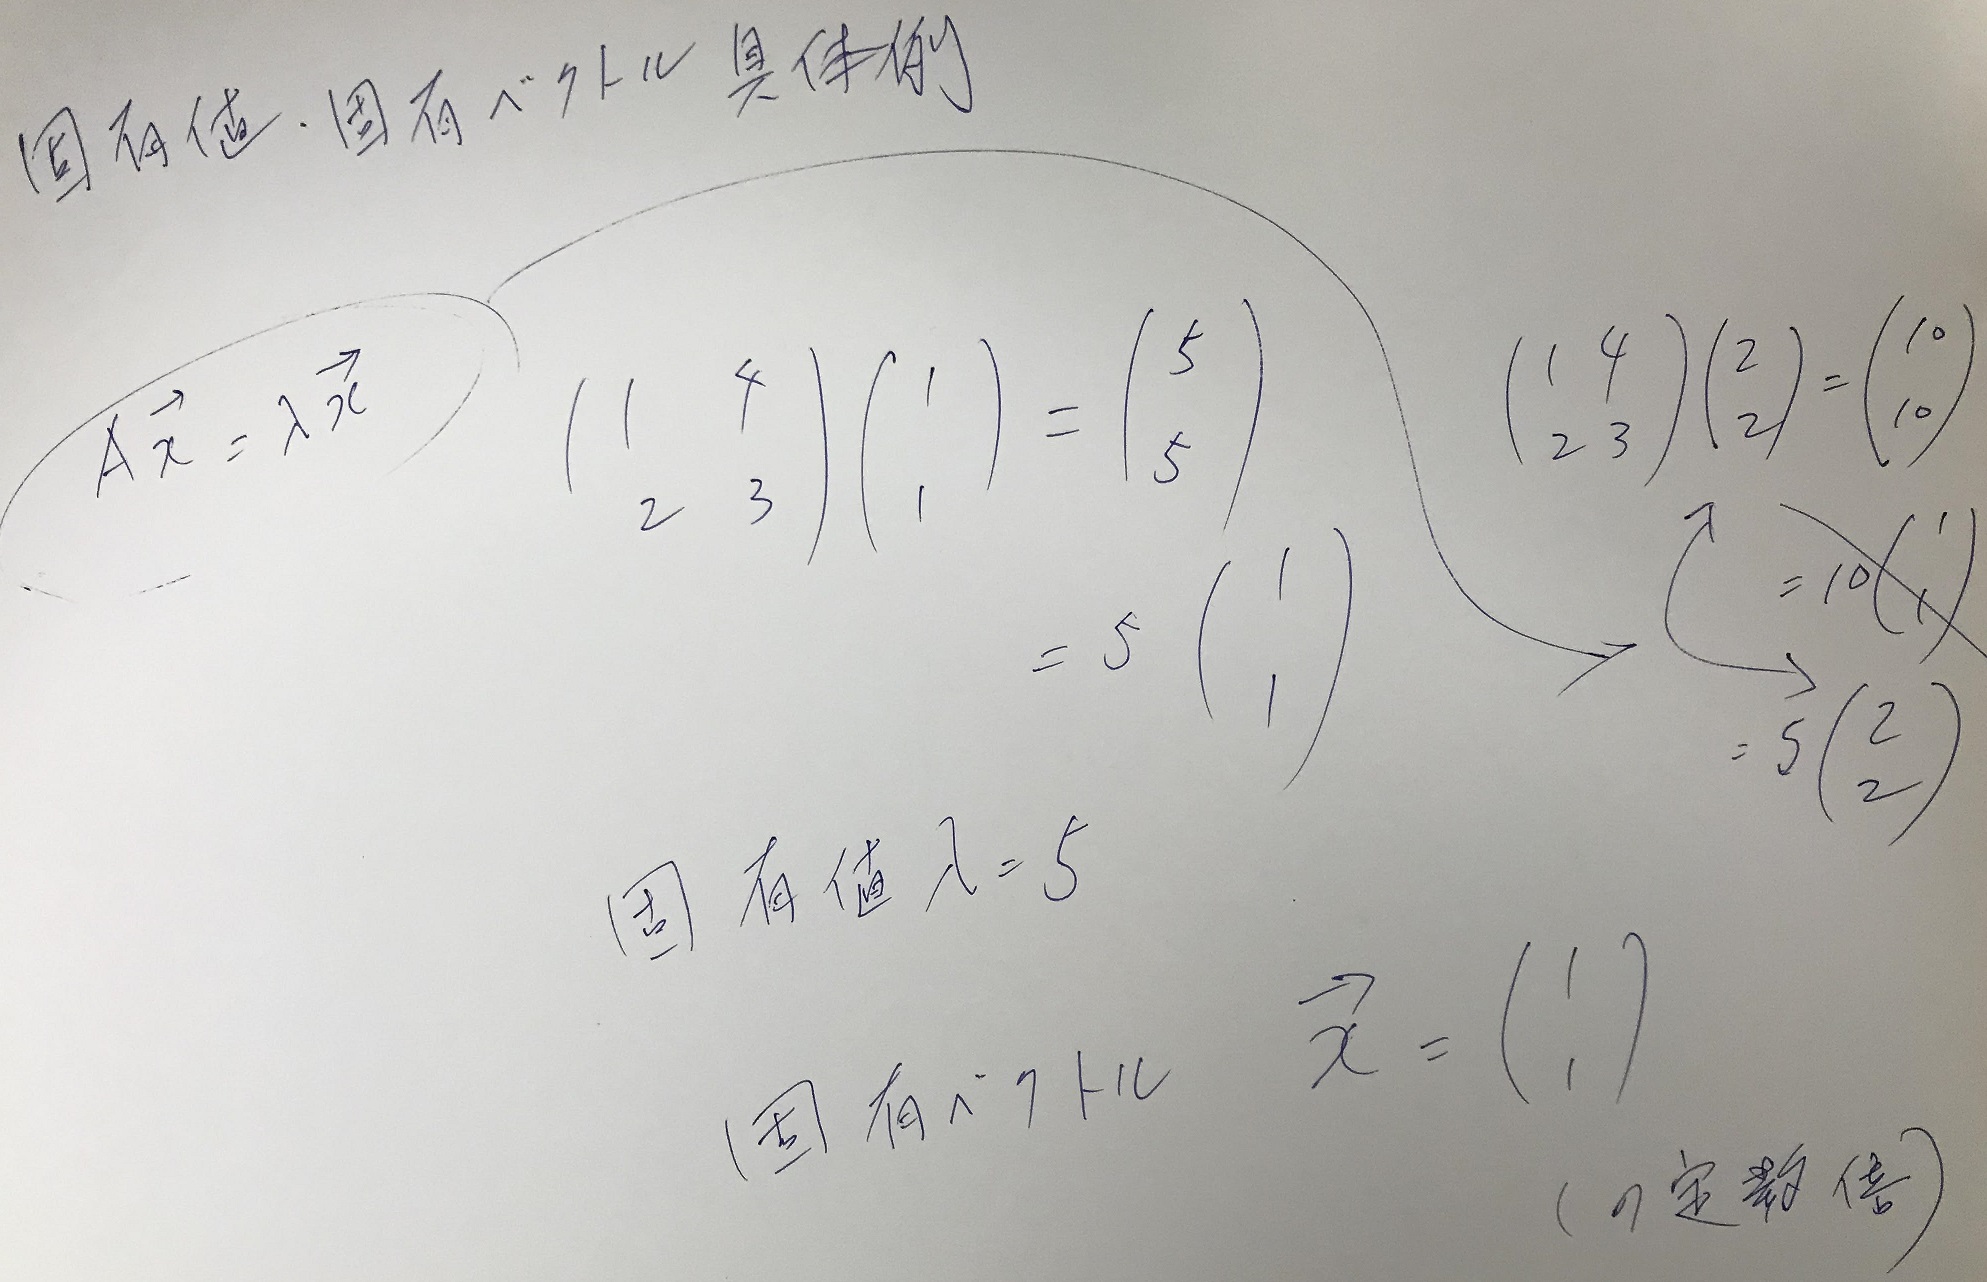 固有値・固有ベクトル 具体例
A\vec{x} = λ\vec{x}
\begin{pmatrix} 1 & 4 \\ 2 & 3 \end{pmatrix} \begin{pmatrix} 1 \\ 1 \end{pmatrix} = \begin{pmatrix} 5 \\ 5 \end{pmatrix}
= 5 \begin{pmatrix} 1 \\ 1 \end{pmatrix}
\begin{pmatrix} 1 & 4 \\ 2 & 3 \end{pmatrix} \begin{pmatrix} 2 \\ 2 \end{pmatrix} = \begin{pmatrix} 10 \\ 10 \end{pmatrix}
= 10 \begin{pmatrix} 1 \\ 1 \end{pmatrix}
= 5 \begin{pmatrix} 2 \\ 2 \end{pmatrix}
固有値 λ = 5
固有ベクトル \vec{x} = \begin{pmatrix} 1 \\ 1 \end{pmatrix}
(の定数倍)